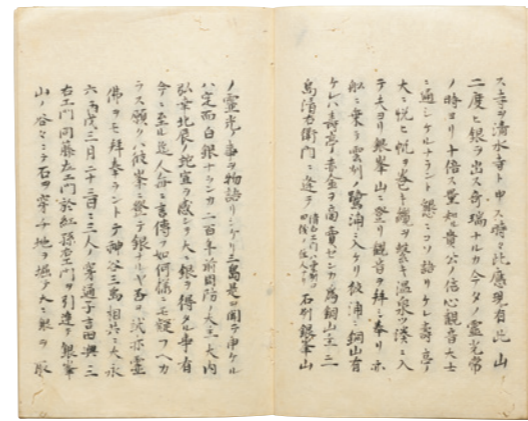 ス寺ヲ清水寺ト申ス時々此應現有此山
二度ヒ銀ヲ出ス奇瑞ナルカ今夕ノ霊光常
ノ時ヨリ十倍ス量知ル貴公ノ信心観音大士
ニ通シケルナラント懇ニコソ語リケレ壽亭ノ
大ニ悦ヒ帆ヲ巻キ纜ヲ繋キ温泉ノ湊ニ入
テ夫ヨリ銀峯山ニ登リ観音ヲ拜シ奉リ亦
舩ニ乗ラ雲刕ノ鷺浦ニ入ケリ彼浦ニ銅山有
ケレハ壽亭ノ赤金ヲ買センカ為銅山主三
島清右衛門ニ逢テ 石刕銀峯山
ノ霊光ノ事ヲ物語リシケリ三島是ヲ聞テ申ケル
ハ定而白銀ナランカ二百年前周防ノ大主大内
弘幸北辰ノ託宣ヲ感シ大ニ銀ヲ得タル事有
今ニ至ル迄人毎ニ言傳フ如何様ニモ疑フヘカ
ラス願クハ彼峯ニ登テ銀ナルヤ否ヲ試亦霊
佛ヲモ拜奉ラントテ神谷三島相共ニ大永
六丙戌三月二十三日ニ三人ノ穿通子吉田與三
右エ門同藤左エ門於紅孫右エ門ヲ引連テ銀峯
山ノ谷々ニテ石ヲ穿チ地ヲ掘テ大ニ銀ヲ取